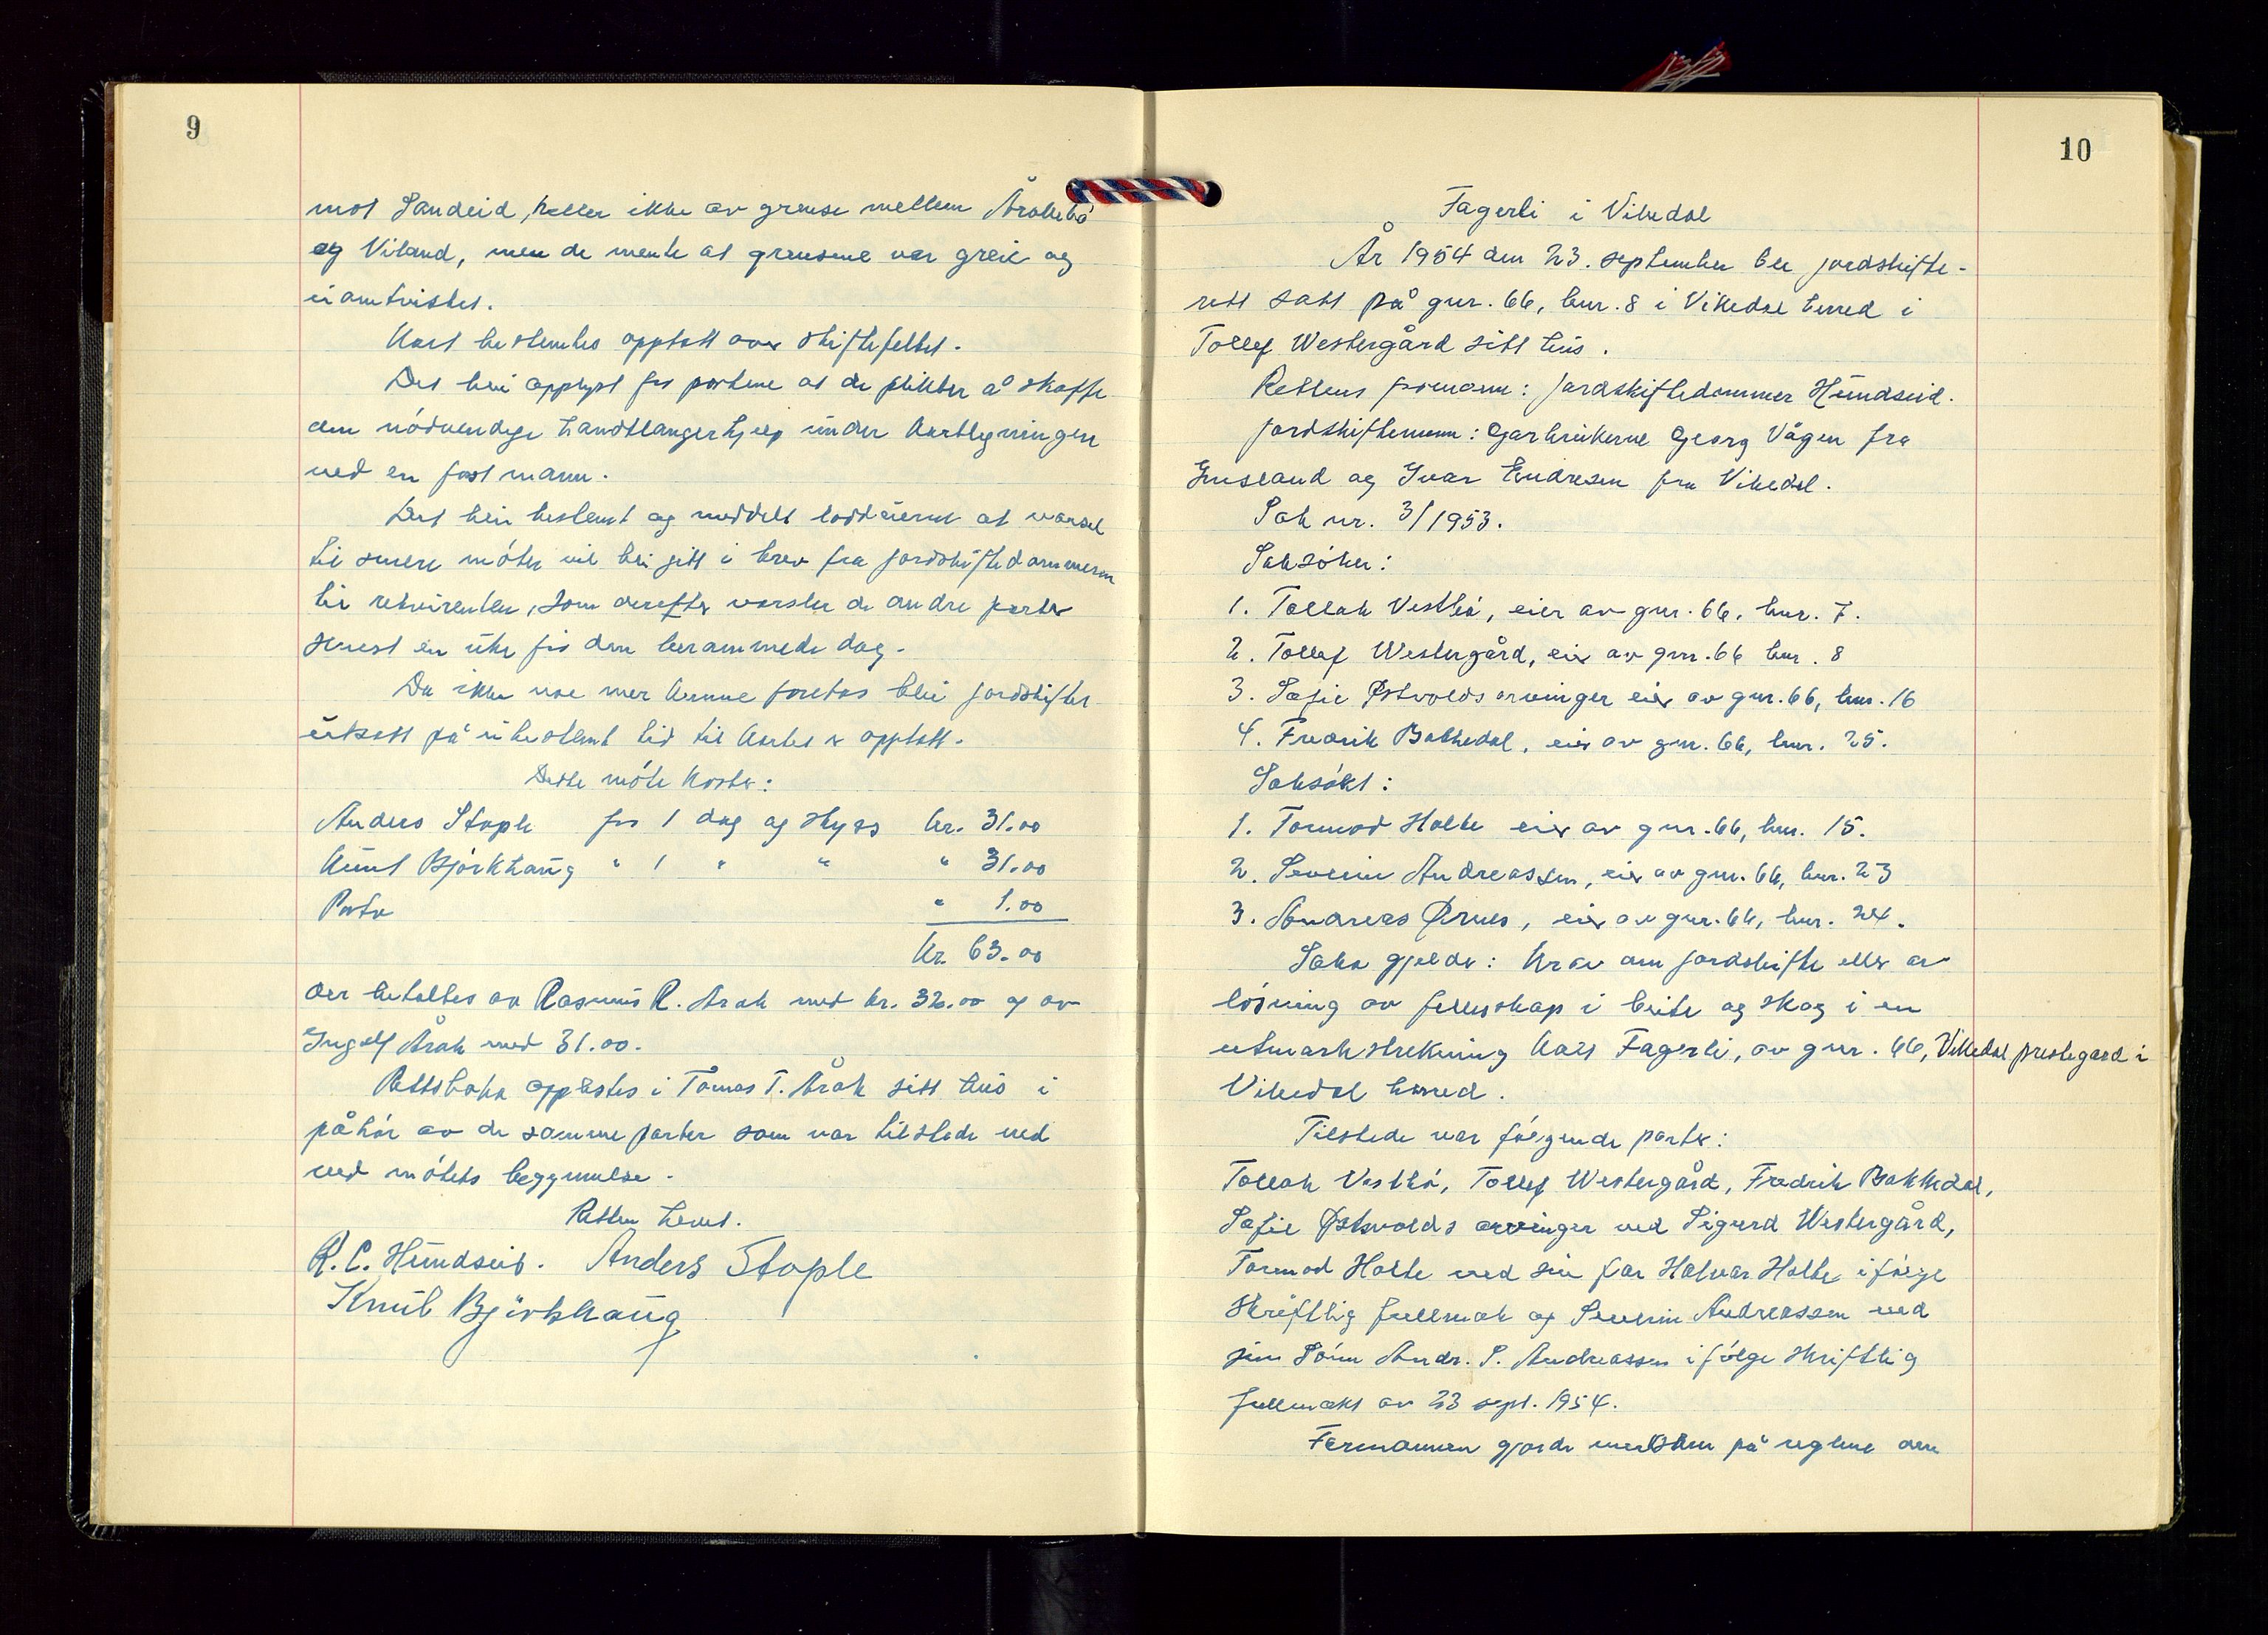 9
mot Sandeid, heller ikke av grense mellem Årakebø
og Viland, men de mente at grensene var greie og
uomtvistet.
Kart bestemtes opptatt over skiftefeltet.
Det blei opplyst for partene at de plikter å skaffe
den nödvendige handtlangerhjelp under kartlegningen
ved en fast mann.
Det blei bestemt og meddelt loddeierne at varsel
til senere möter vil bli gitt i brev fra jordskiftedommeren
til rekvirenten, som derefter varsler de andre parter
senest en uke för den berammede dag.
Da ikke noe mer kunne foretas blei jordskiftet
utsatt på ubestemt tid til kartet er opptatt.
Dette möte koster:
Anders Stople for 1 dag og skyss kr. 31.00
Knut Björkhaug " 1 " " " 31.00
Porto " 1.00
Kr. 63.00
der betaltes av Rasmus R. Årak med kr. 32.00 og av
Ingolf Årak med 31.00.
Rettsboka opplestes i Tomas T. Årak sitt hus i
påhör av de samme parter som var tilstede ved
ved mötets begynnelse.
Retten hevet.
R. C. Hundseid. Anders Stople
Knut Björkhaug
10
Fagerli i Vikedal
År 1954 den 23. september ble jordskifte-
rett satt på gnr. 66, bnr. 8 i Vikedal herred i
Tollef Westergård sitt hus.
Rettens formann: jordskiftedommer Hundseid.
Jordskiftemenn: Garbrukerne Georg Vågen fra
Imsland og Ivar Endresen fra Vikedal.
Sak nr. 3/1953.
Saksöker:
1. Tollak Vestbö, eier av gnr. 66, bnr. 7.
2. Tollef Westergård, eier av gnr. 66 bnr. 8
3. Sofie Østvolds arvinger eier av gnr. 66, bnr. 16
4. Fredrik Bakkedal, eier av gnr. 66, bnr. 25.
Saksökt:
1. Tormod Holte eier av gnr. 66, bnr. 15.
2. Severin Andreassen, eier av gnr. 66, bnr. 23
3. Andreas Ørnes, eier av gnr. 66, bnr. 24.
Saka gjelder: Krav om jordskifte eller av
lösning av fellesskap i beite og skog i en
utmarkstrekning kalt Fagerli, av gnr. 66, Vikedal prestegard i
Vikedal herred.
Tilstede var fölgende parter:
Tollak Vestbö, Tollef Westergård, Fredrik Bakkedal,
Sofie Østvolds arvinger ved Sigurd Westergård,
Tormod Holte ved sin far Halvar Holte ifölge
skriftlig fullmak og Severin Andreassen ved
sin Sönn Andr. S. Andreassen ifölge skriftlig
fullmakt av 23 sept. 1954.
Formannen gjorde merksam på reglene om